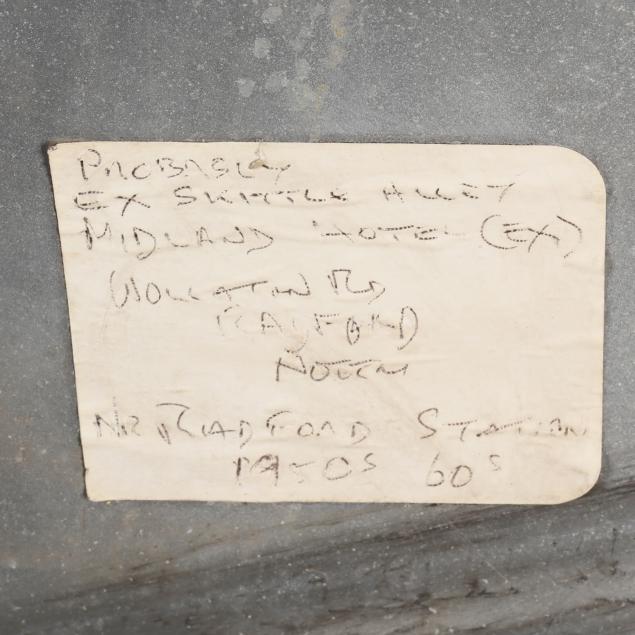 PROBABLY
EX SKITTLE ALLEY
MIDLAND HOTEL (EX)
WOLLATON RD
RADFORD
NOTTM
NR RADFORD STATION
1950S 60S